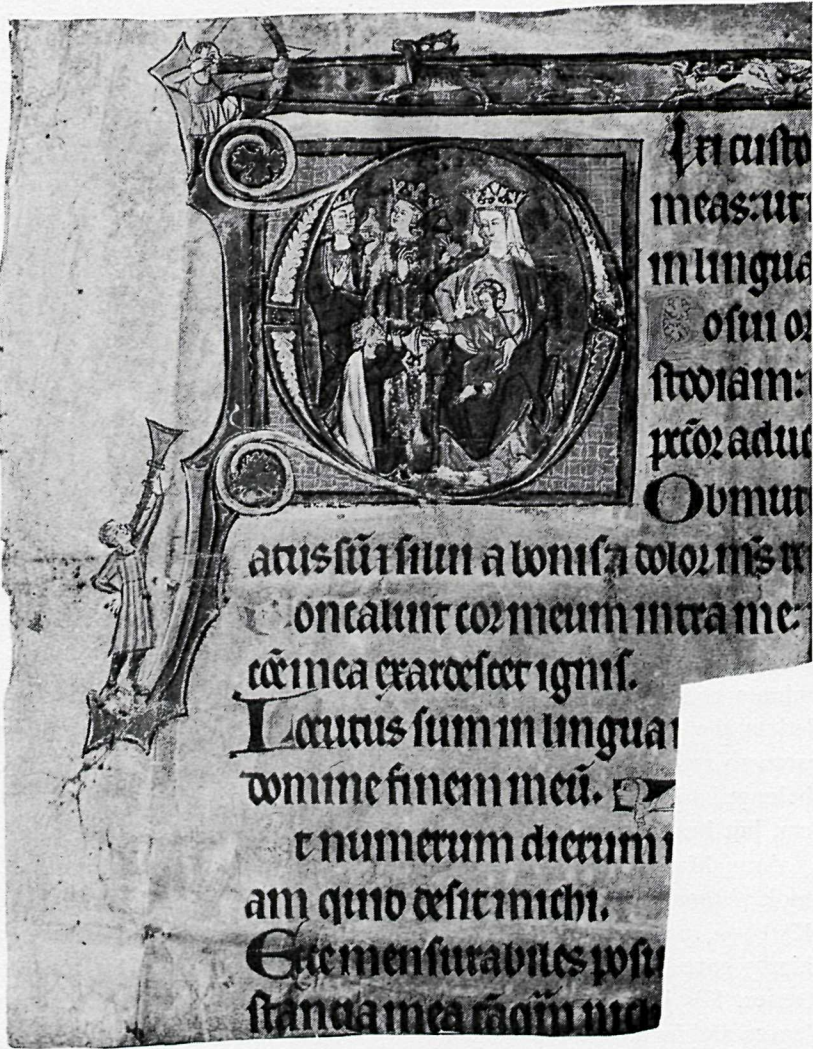 Dixi custo
meas: ut
in lingua
Posui or
stodiam:
pccor adu
Obmut
atus sū ⁊ silui a bonis ⁊ dolor ms re
oncaluit cor meum intra me:
cōe mea exardescet ignis.
Locutus sum in lingua
domine finem meū.
t numerum dierum
am quid desit michi.
Ecce mensurabiles posu
stancia mea tāqm nich